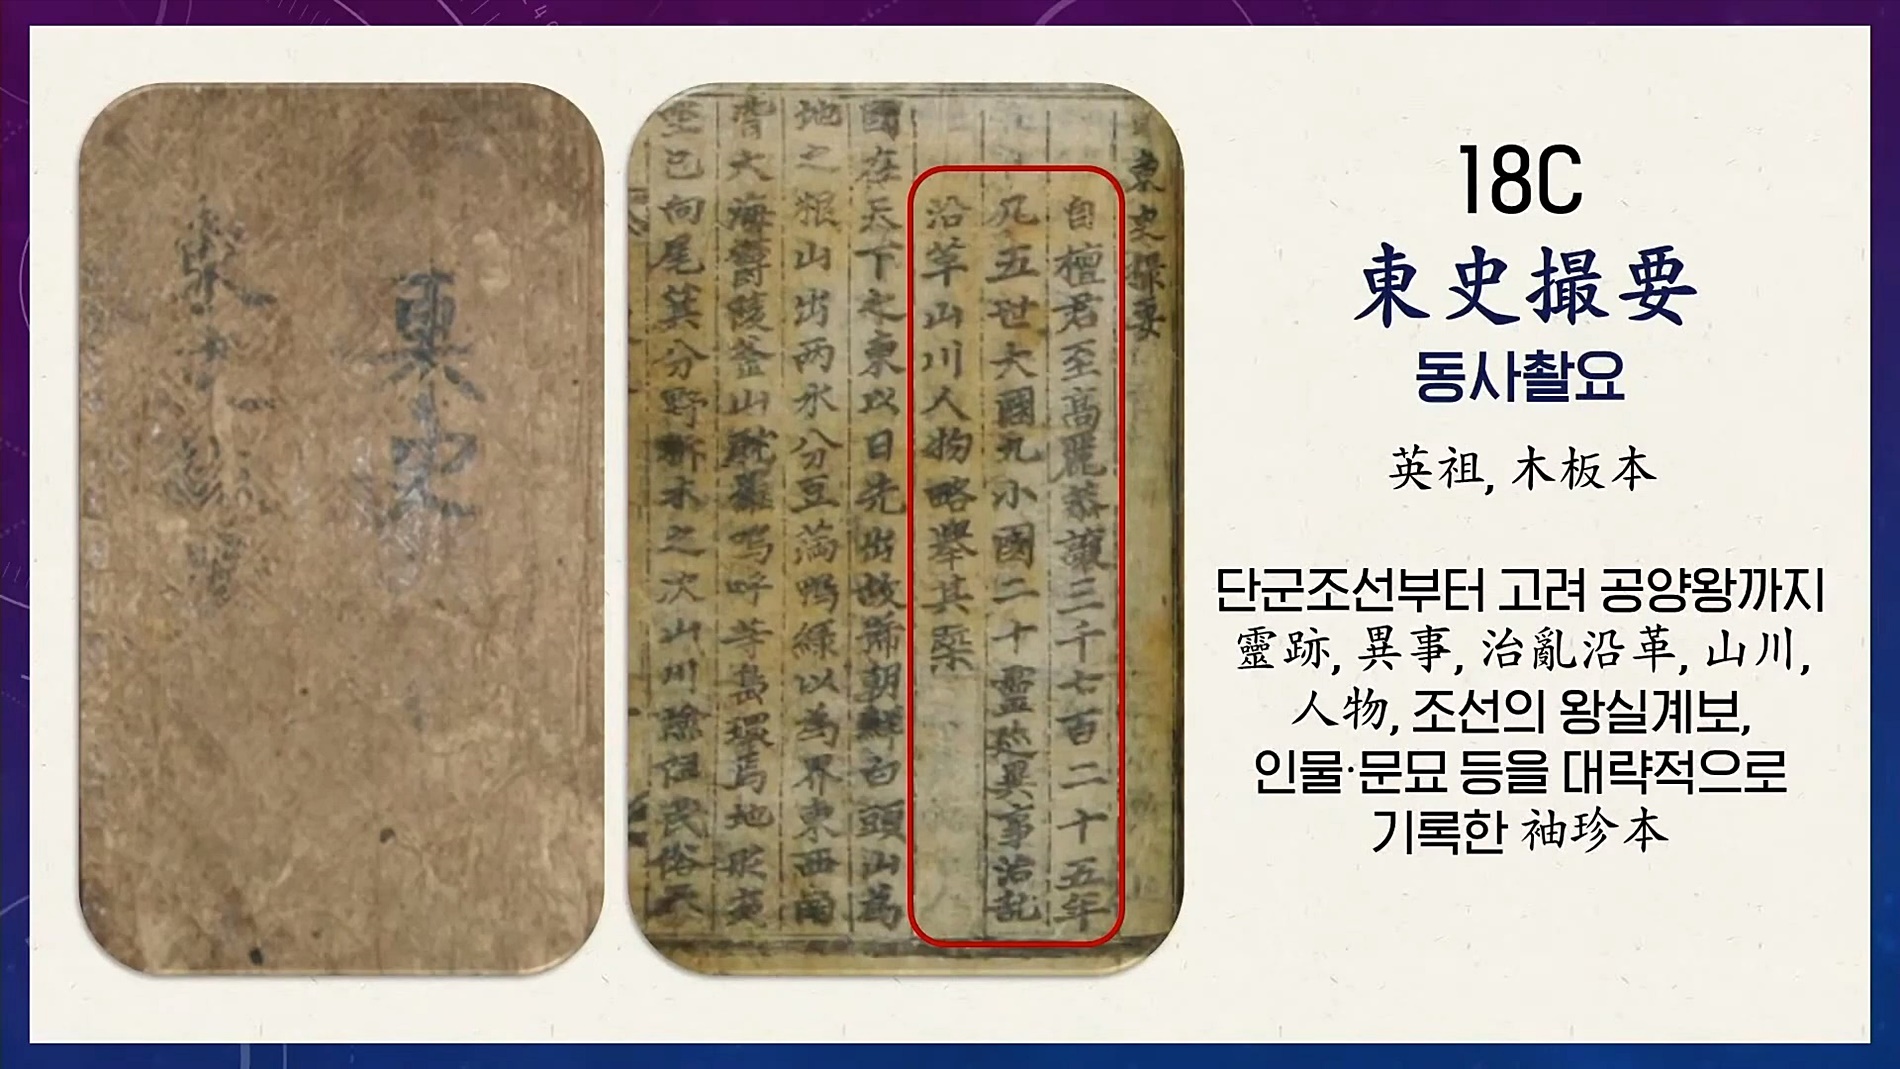 東史
東史撮要
自檀君至高麗恭讓三千七百二十五年
凡五世大國九小國二十靈跡異事治乱
沿革山川人物略舉其槩
國在天下之東以日先出故號朝鮮白頭山爲
地之根山出两水分豆満鴨緑以為界東西南
大海欝陵釜山耽羅嗚呼等島環焉地
已向尾箕分野析木之次山川險民俗
18C
東史撮要
동사촬요
英祖, 木板本
단군조선부터 고려 공양왕까지
靈跡, 異事, 治亂沿革, 山川,
人物, 조선의 왕실계보,
인물·문묘 등을 대략적으로
기록한 袖珍本